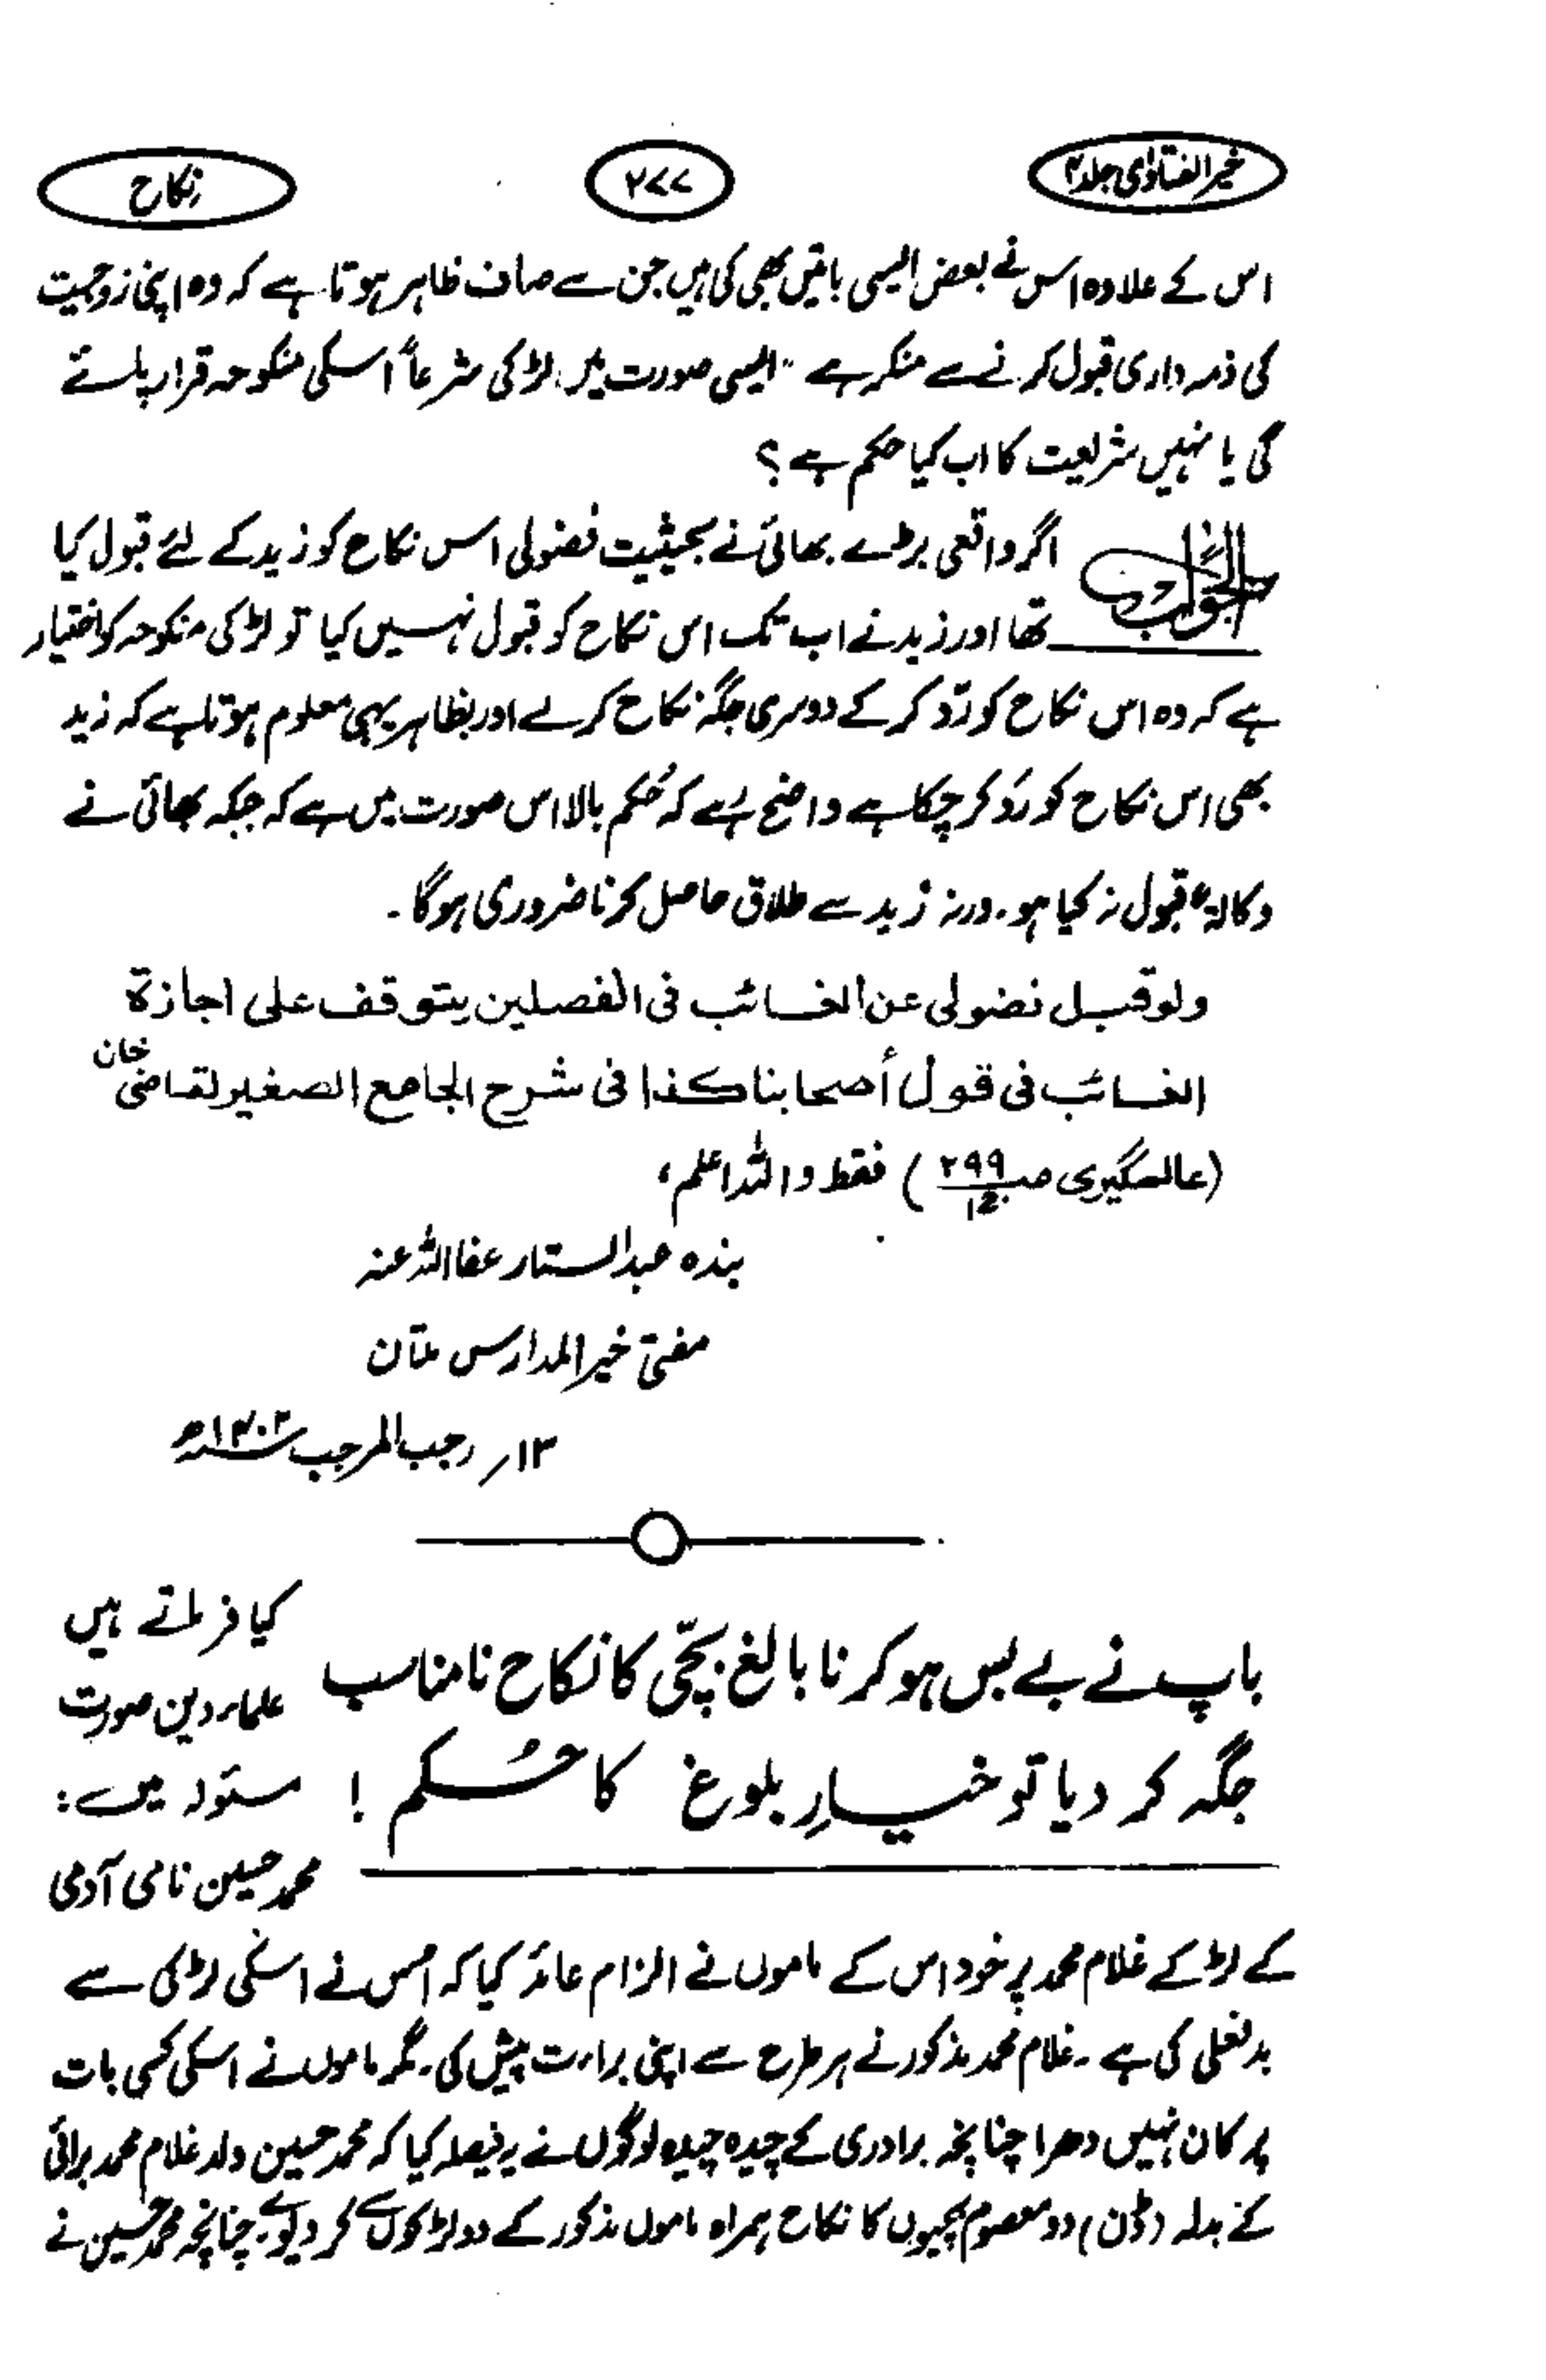 خیر الفتاویٰ جلد ۴
۲۷۷
نکاح
اس کے علاوہ اس نے بعض ایسی باتیں بھی کی ہیں جن سے صاف ظاہر ہوتا ہے کہ وہ اپنی زوجیت
کی ذمہ داری قبول کرنے سے منکر ہے۔ ایسی صورت میں لڑکی شرعاً اسکی منکوحہ قرار پائے
گی یا نہیں شریعت کا اب کیا حکم ہے؟
الجواب
اگر واقعی بڑے بھائی نے بحیثیت فضولی اس نکاح کو زید کے لئے قبول کیا
تھا اور زید نے اب تک اس نکاح کو قبول نہیں کیا تو لڑکی منکوحہ کو اختیار
ہے کہ وہ اس نکاح کو ردّ کر کے دوسری جگہ نکاح کرلے اور بظاہر یہی معلوم ہوتا ہے کہ زید
بھی اس نکاح کو رَد کر چکا ہے واضح رہے کہ حُکم بالا اس صورت میں ہے کہ جبکہ بھائی نے
وکالۃً قبول نہ کیا ہو۔ ورنہ زید سے طلاق حاصل کرنا ضروری ہوگا۔
ولو قبل فضولی عن الغائب فی الفصلین یتوقف علی اجازة
الغائب فی قول أصحابنا کذا فی شرح الجامع الصغیر لقاضی خان
(عالمگیری صـ ۲۹۹ ج۱) فقط واللہ اعلم،
بندہ عبدالستار عفا اللہ عنہ
مفتی خیر المدارس ملتان
۱۳؍ رجب المرجب ۱۴۰۲ھ
باپ نے بے بس ہو کر نابالغ بچّی کا نکاح نامناسب
جگہ کر دیا تو خیارِ بلوغ کا حُکم !
کیا فرماتے ہیں
علماء دین صورت
مسئولہ میں:
محمد حسین نامی آدمی
کے لڑکے غلام محمد پر خود اس کے ماموں نے الزام عائد کیا کہ اُس نے اسکی لڑکی سے
بدفعلی کی ہے۔ غلام محمد مذکور نے ہر طرح سے اپنی براءت پیش کی۔ مگر ماموں نے اسکی کسی بات
پر کان نہیں دھرا چنانچہ برادری کے چیدہ چیدہ لوگوں نے یہ فیصلہ کیا کہ محمد حسین ولد غلام محمد برائی
کے بدلہ (ڈن) دو معصوم بچیوں کا نکاح ہمراہ ماموں مذکور کے دو لڑکوں سے کر دیوے۔ چنانچہ محمد حسین نے